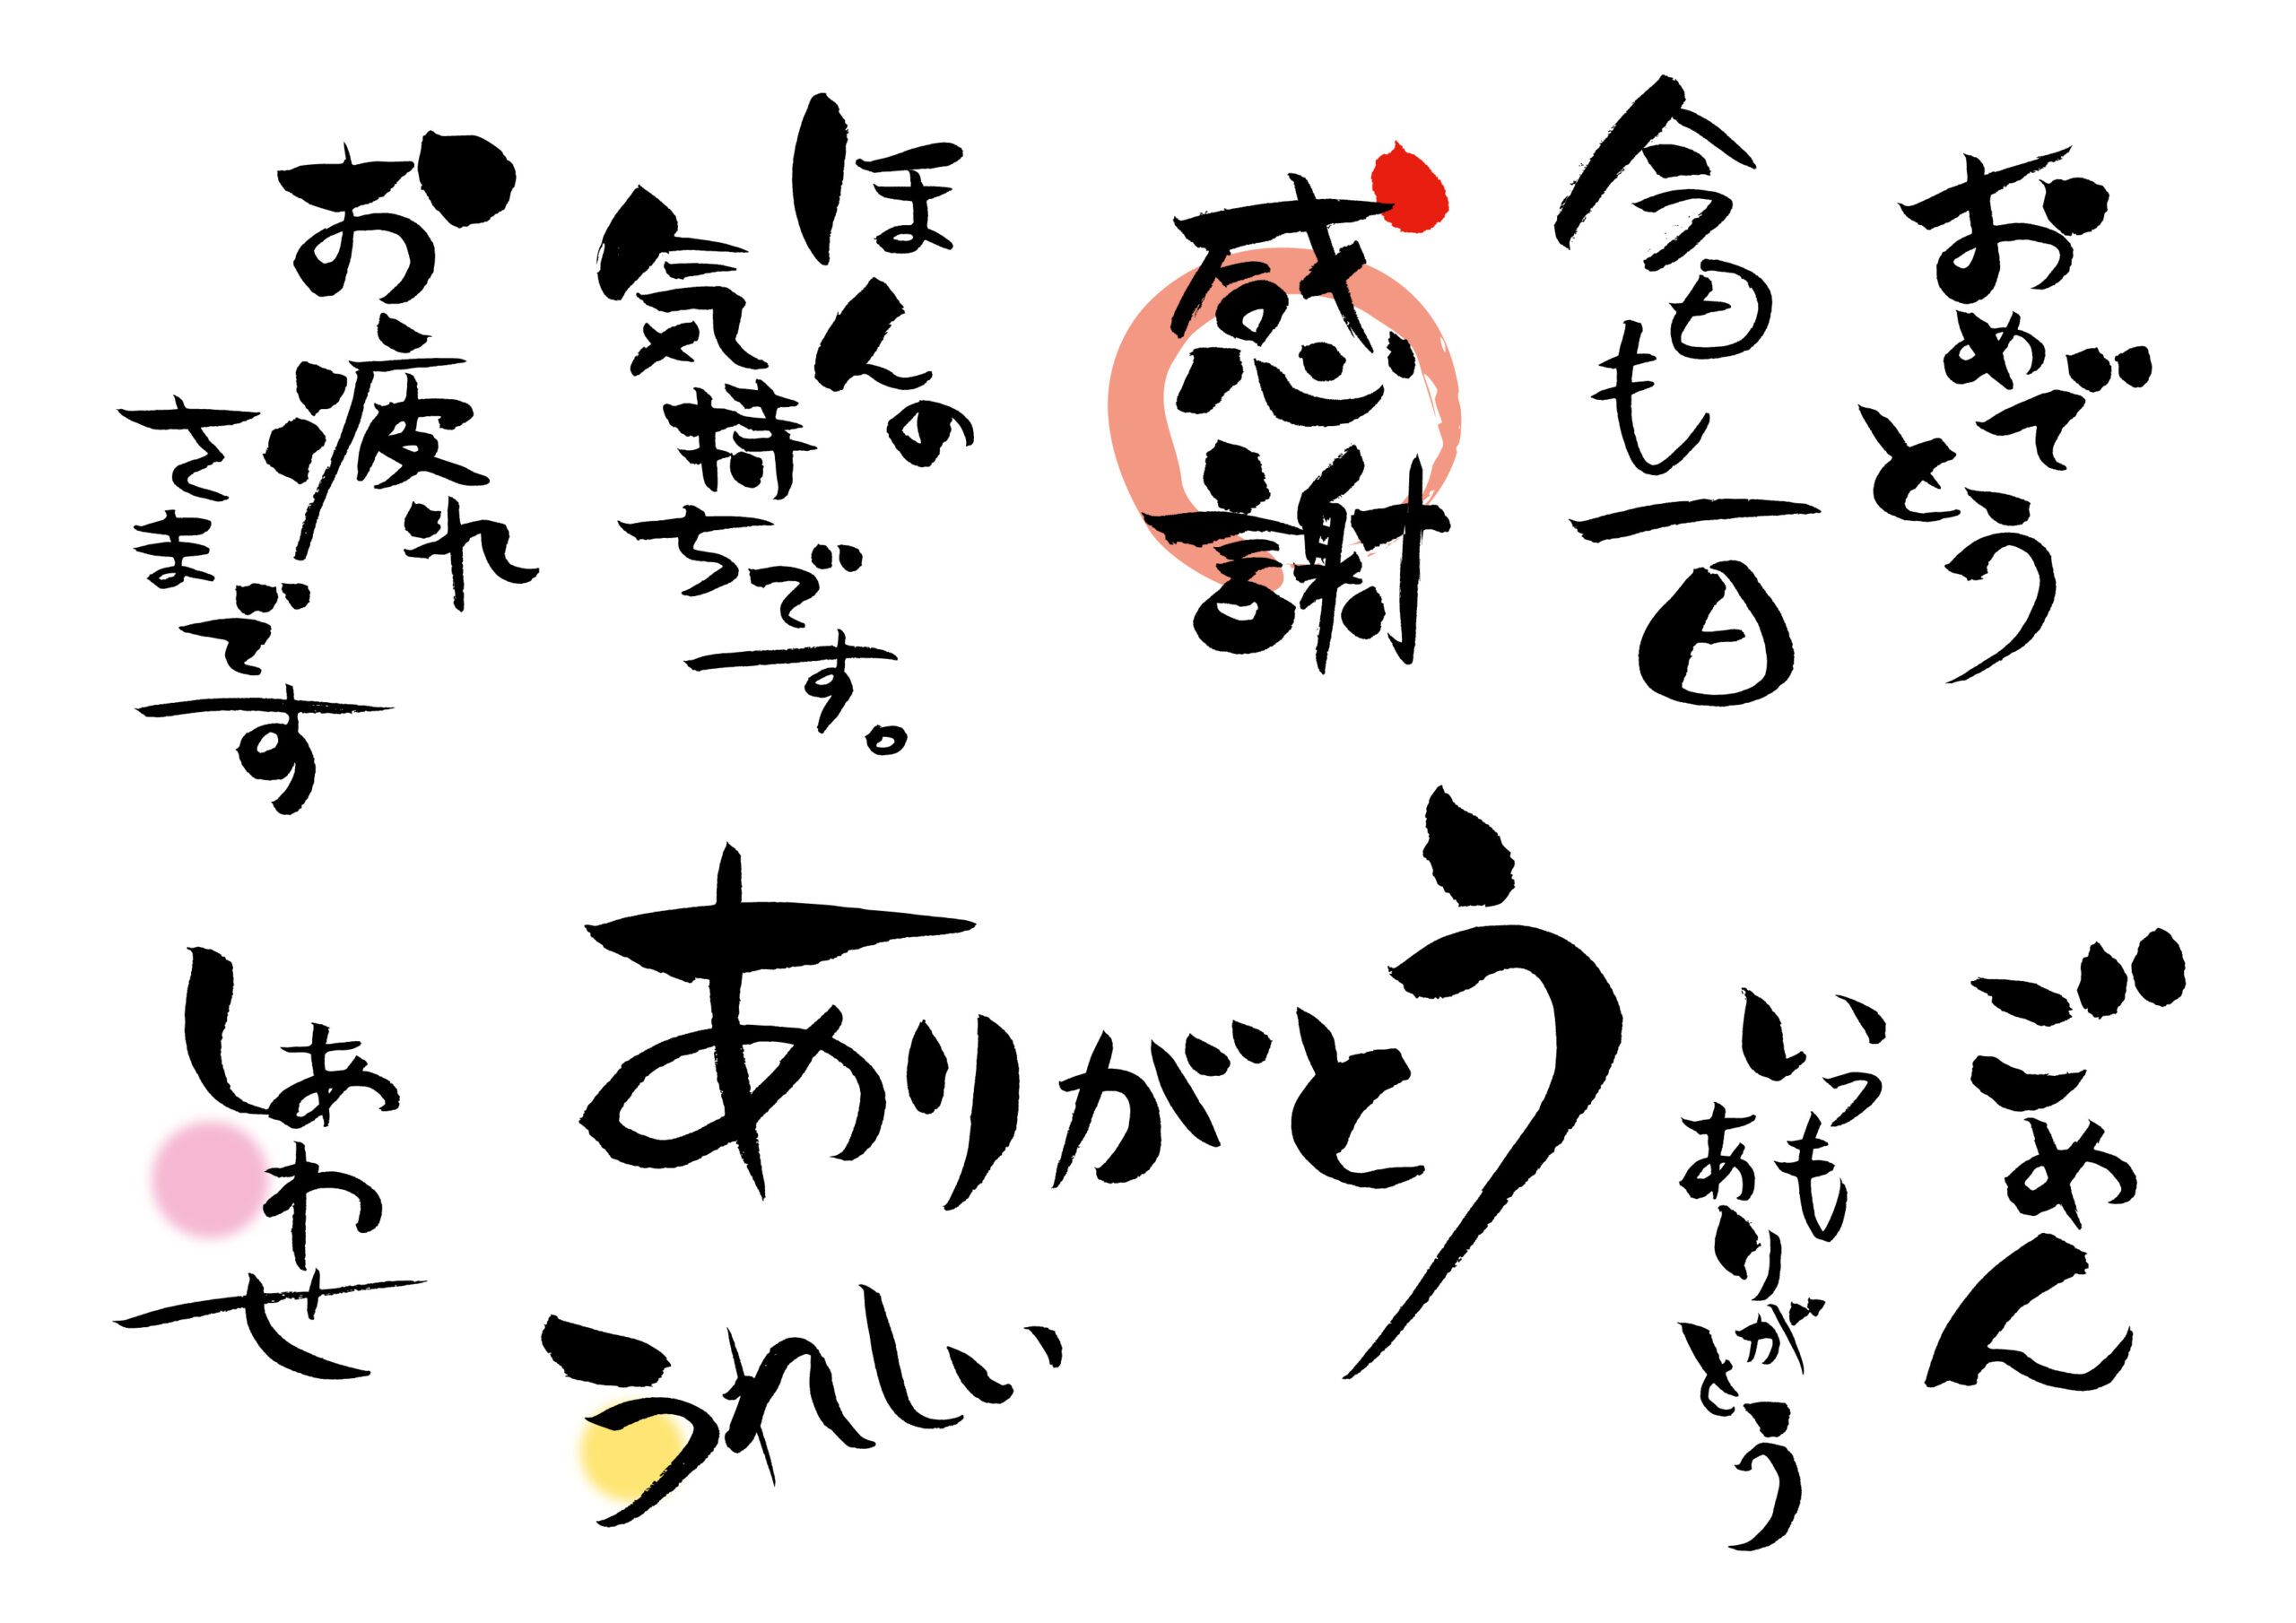 おめでとう
今日も一日
感謝
ほんの
気持ちです。
お疲れ
さまです
ごめん
いつも
ありがとう
ありがとう
うれしい
しあわせ